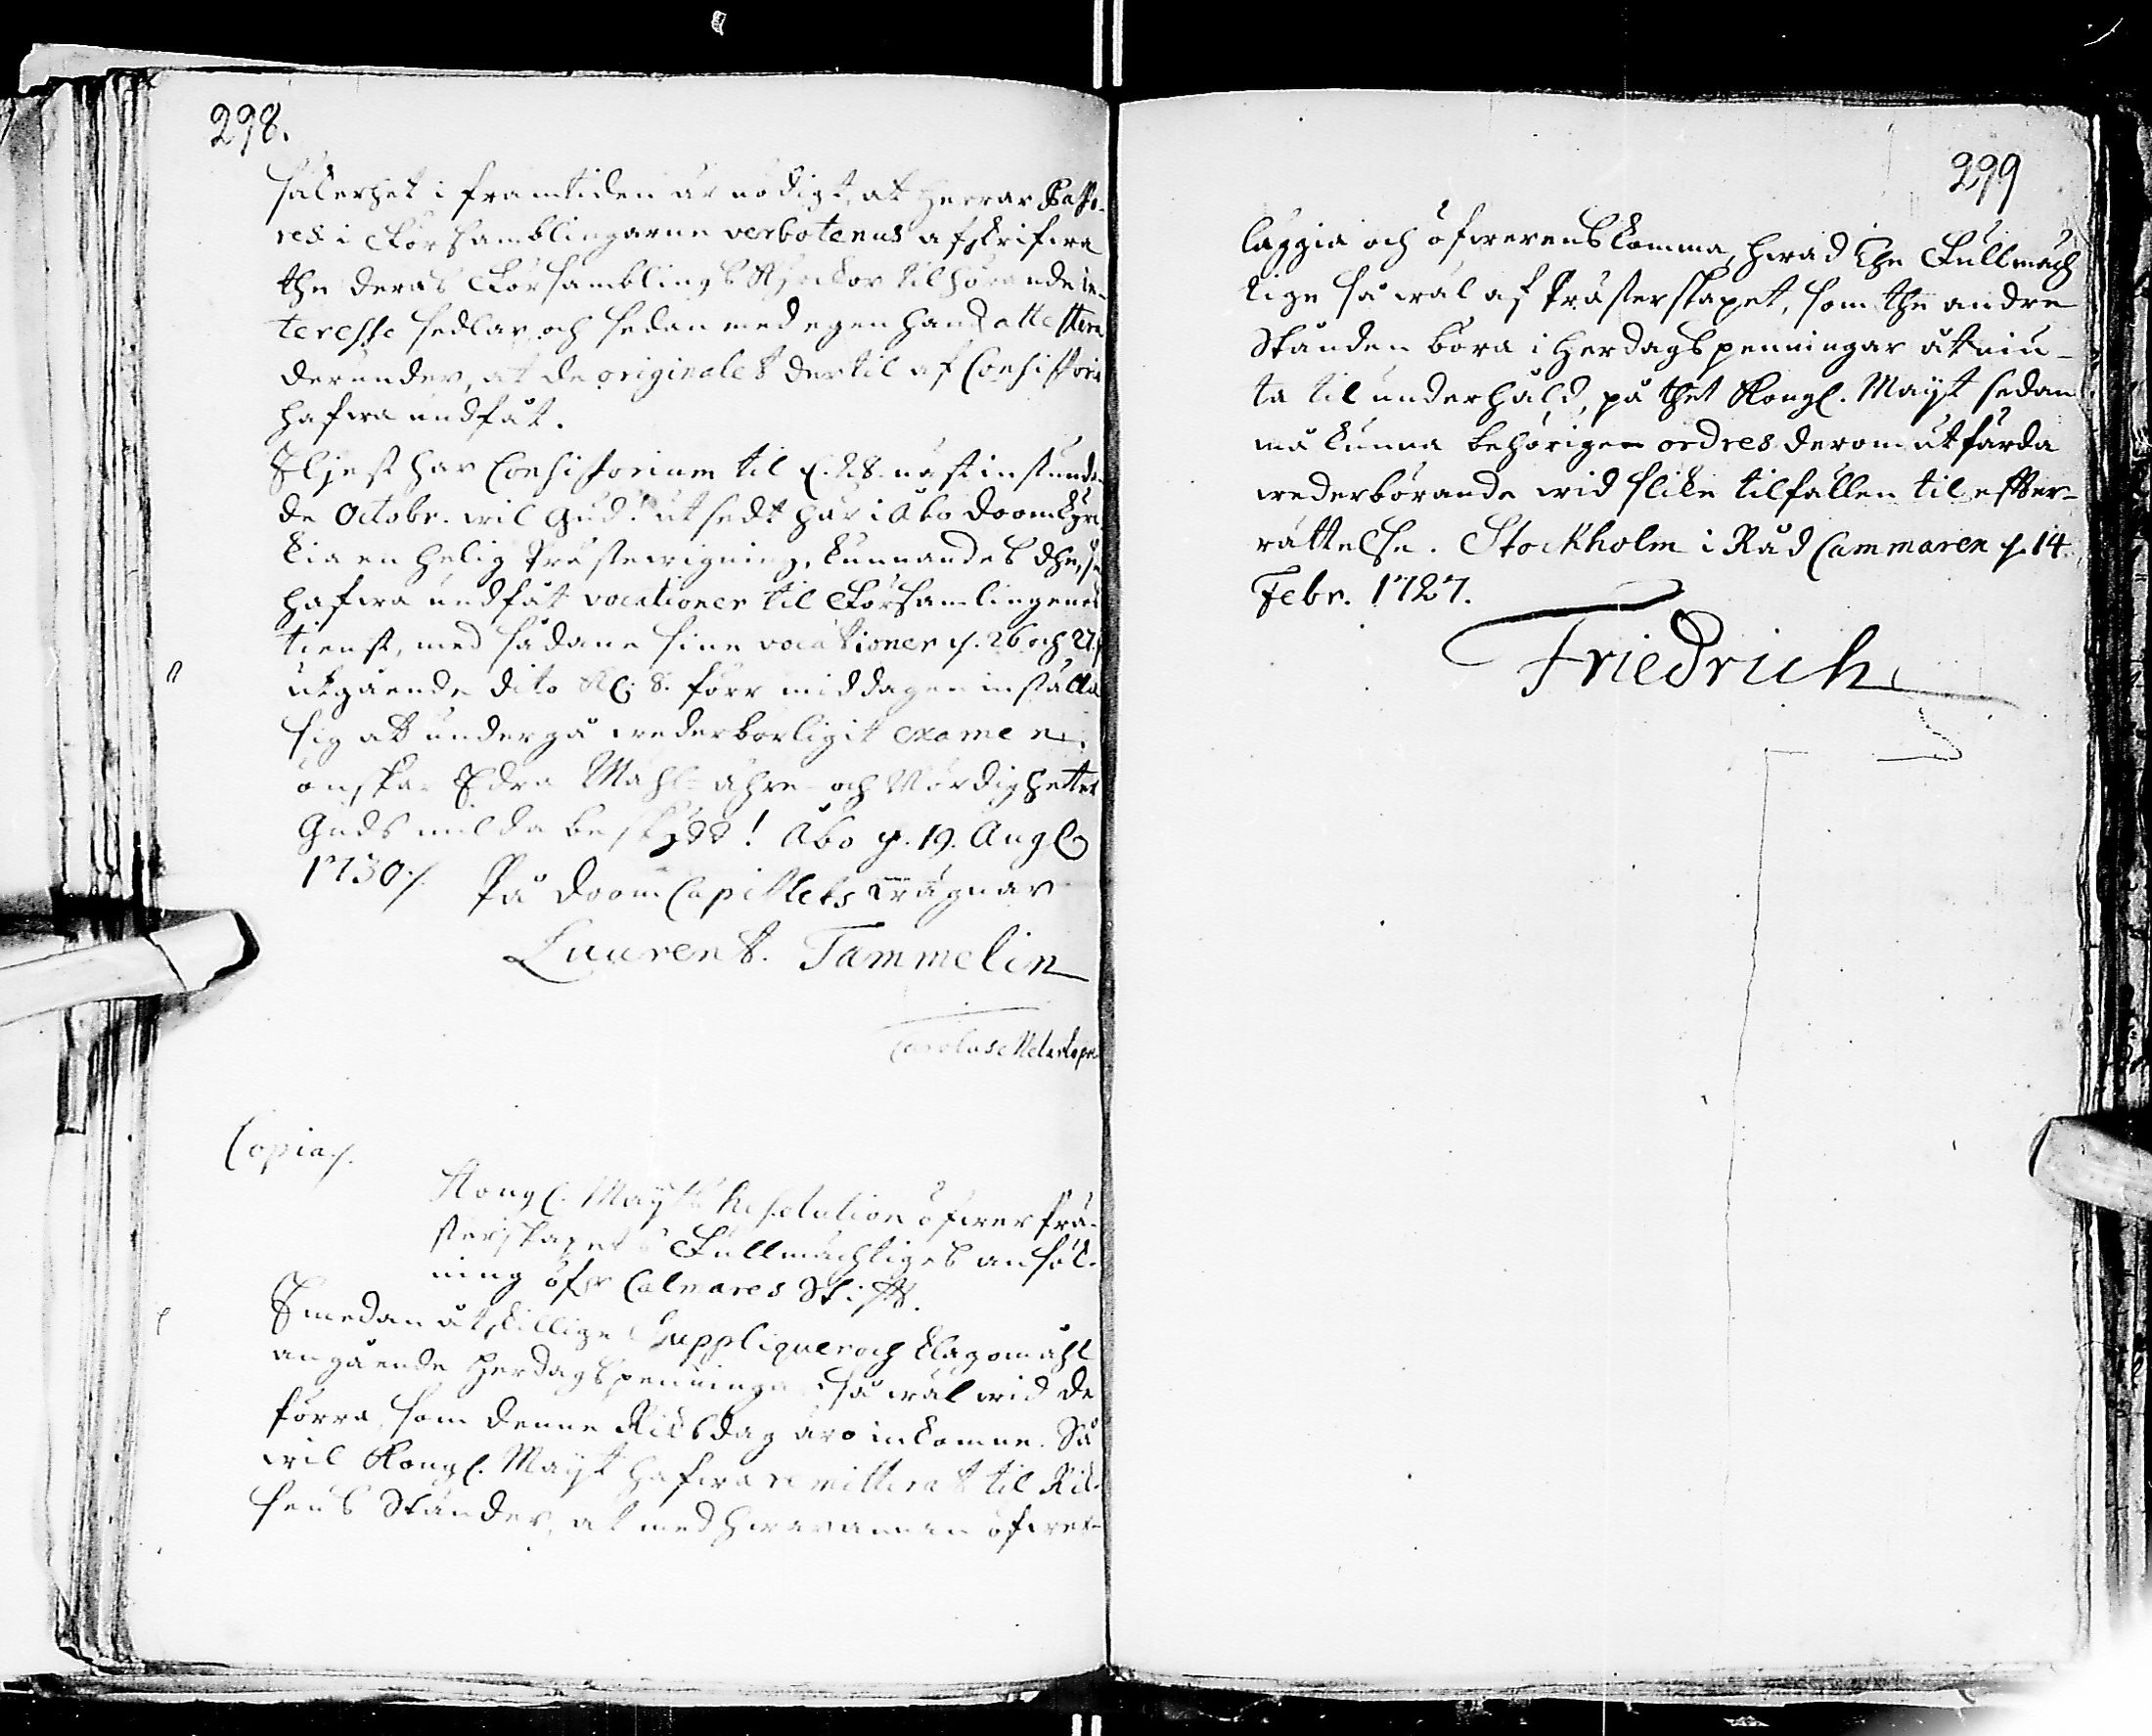 298.
säkerhet i framtiden är nödigt, at Herrar Pasto-
res i Församblingarne verbotenus afskrifwa
the deras Församblings Kyrckor tilhörande in-
teresse sedlar, och sedan med egen hand attestera
derunder, at de originalet dertil af Consistorio
hafwa undfåt.
Eljest har Consistorium til d. 28. nästinstundan
de Octobr. wil Gud! utsedt här i Åbo Doomkyr-
kia en helig Prästewigning, kunnandes dhe, som
hafwa undfåt vocationer til Församlingenes
tienst, med sådane sine vocationer d. 26 och 27.
utgående dito Kl: 8. förr middagen inställa
sig at undergå wederbörligit examen.
önskar Edra Wähl-ähre- och Wördigheter
Guds milda beskydd! Åbo d. 19. Aug.
1730./. På Doom Capitlets wägnar
Laurent. Tammelin
Carolus Mesterton
Copia./.
Kongl. Maÿtz Resolution öfwer Prä-
sterskapets Fullmächtiges ansök-
ning öfr Calmares Stift.
Emedan åtskillige Suppliquer och klagomåhl
angående Herdagspenningar så wäl wid de
förra, som denne Riksdag äro inkomne. Så
wil Kongl. Maÿt hafwa remitterat til Rik-
sens Ständer, at med hwarannan öfwer-
299
läggia och öfwerenskomma, hwad the Fullmäch
tige så wäl af Prästerskapet, som the andre
Stånden böra i Herdagspenningar åtniu-
ta til underhåld, på thet Kongl. Maÿt sedan
må kunna behörigen ordres derom utfärda
wederbörande wid slike tilfällen til efter-
rättelse. Stockholm i Råd Cammaren d. 14.
Febr. 1727.
Friedrich